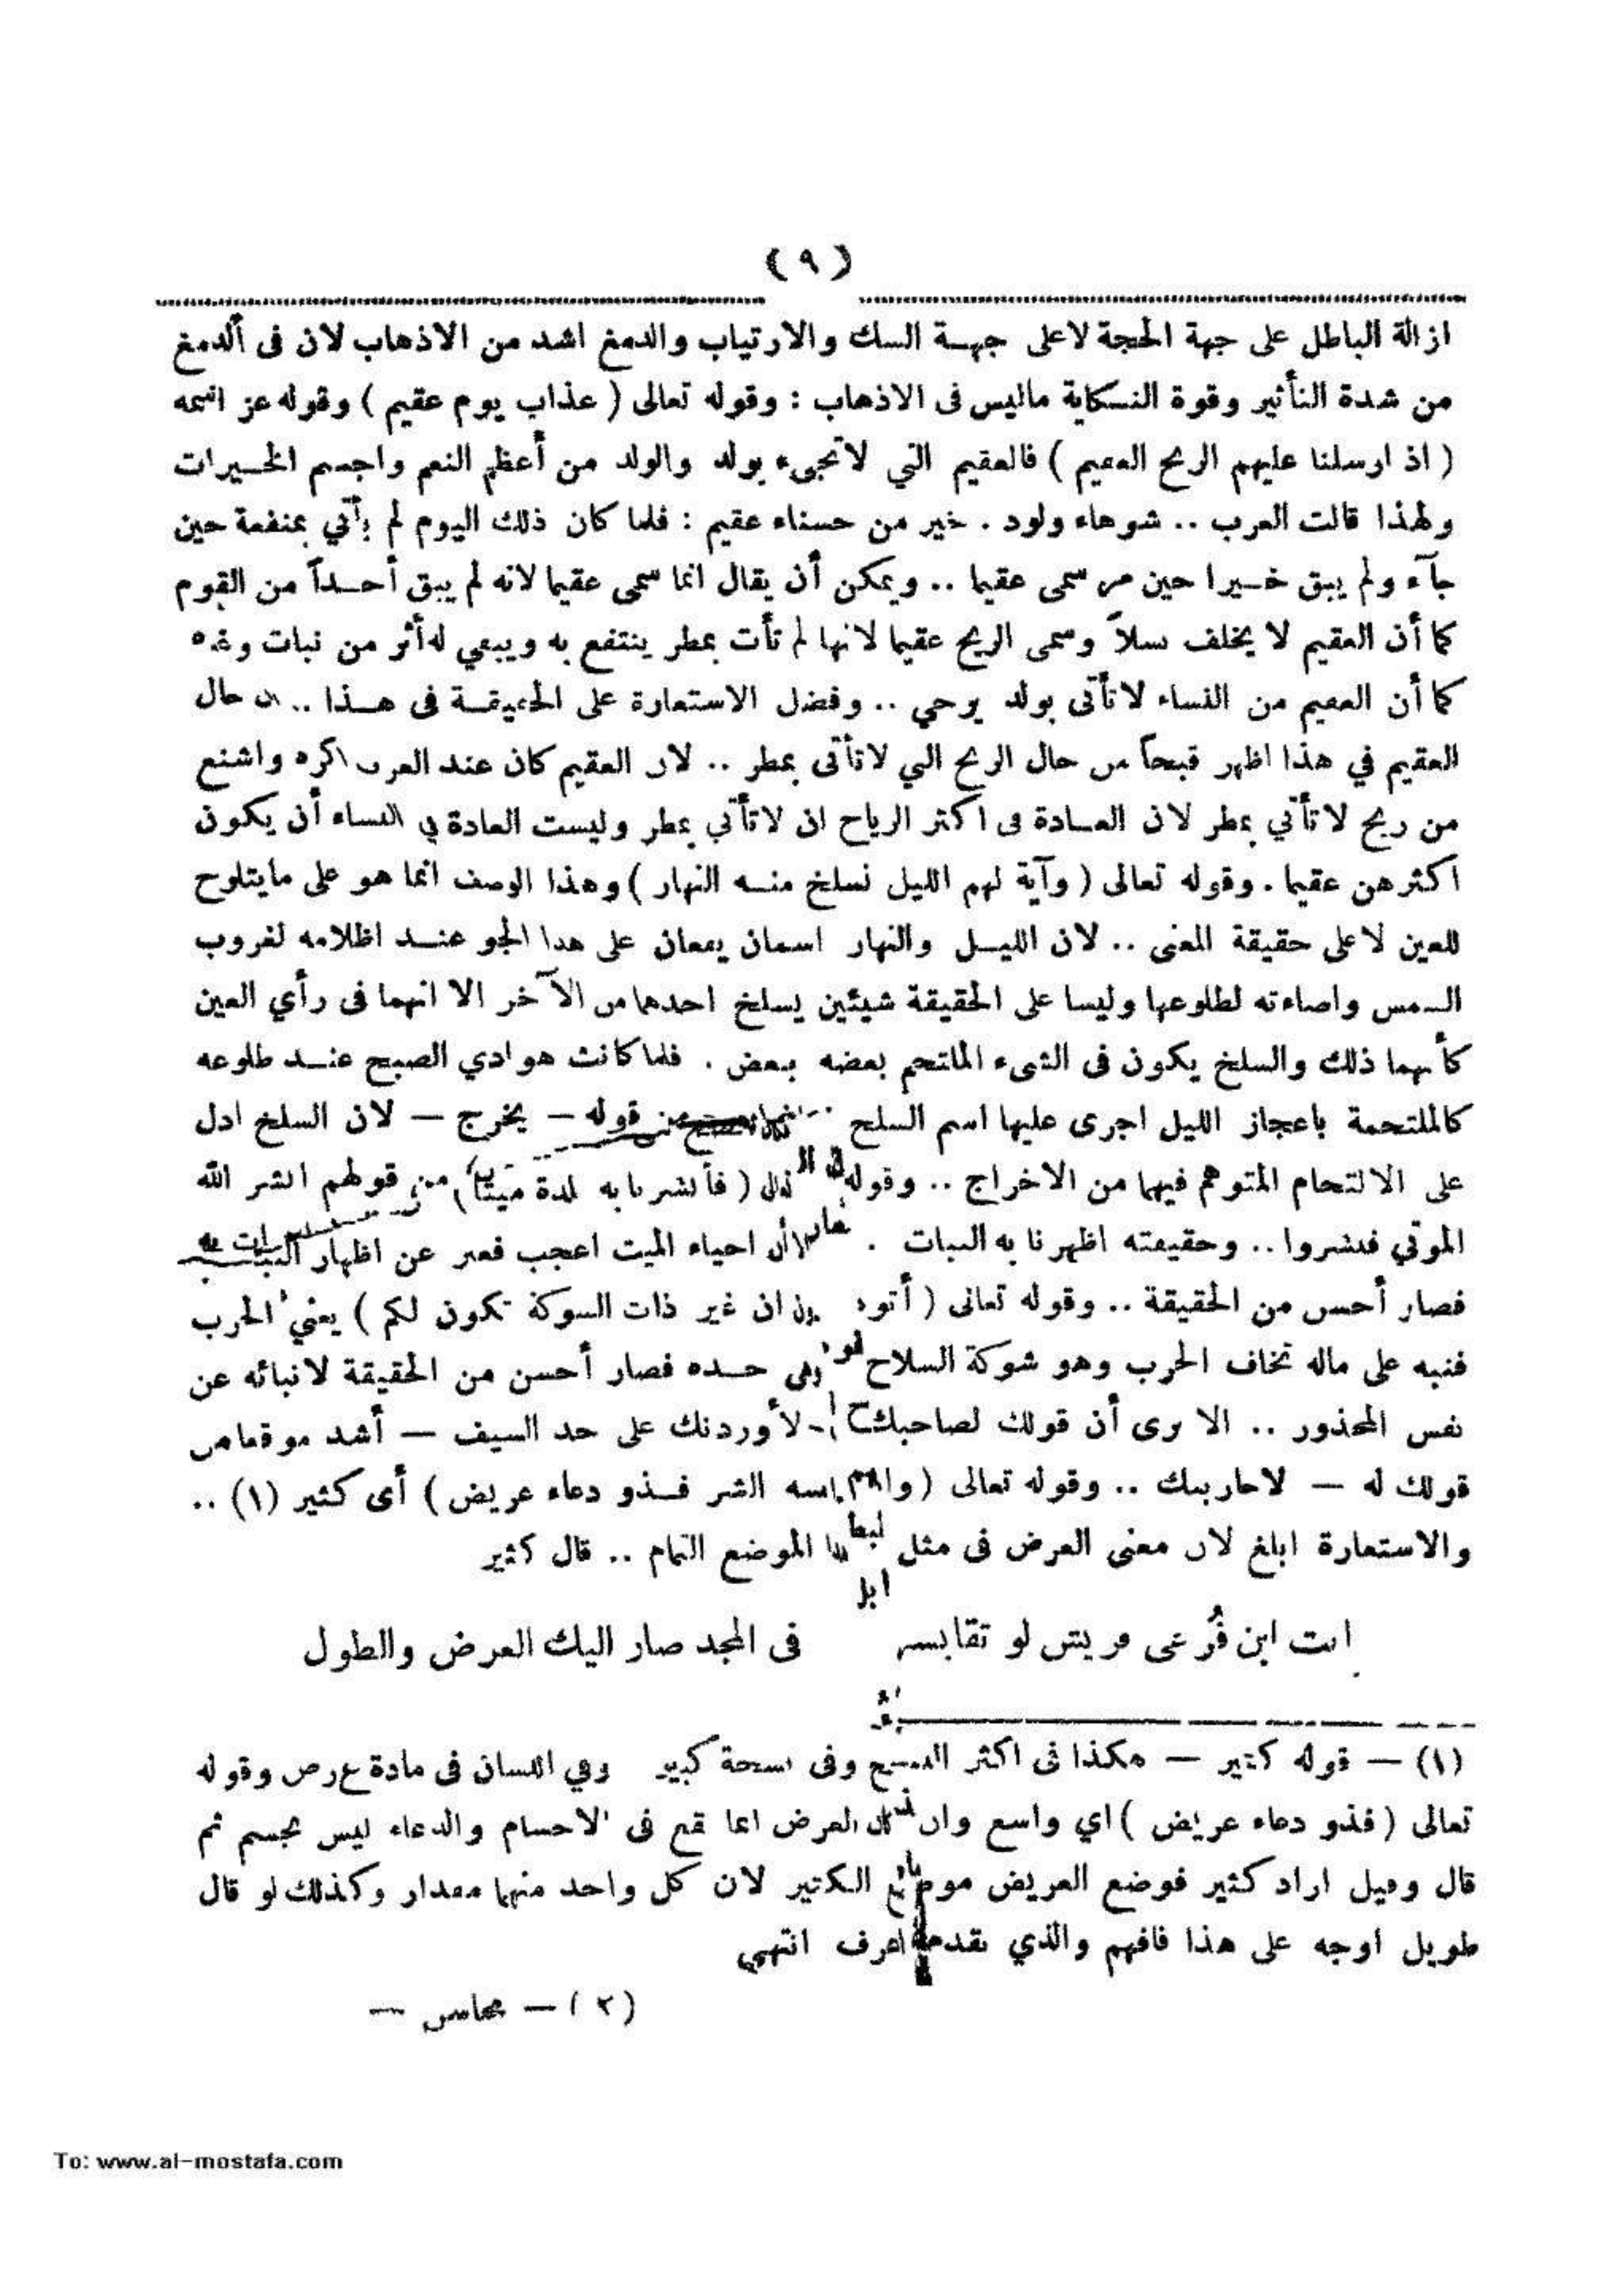 ( ٩ )
ازالة الباطل على جهة الحجة لاعلى جهة الشك والارتياب والدمغ اشد من الاذهاب لان فى ألدمغ
من شدة التأثير وقوة النكاية ماليس فى الاذهاب : وقوله تعالى ( عذاب يوم عقيم ) وقوله عز اسمه
( اذ ارسلنا عليهم الريح العقيم ) فالعقيم التي لاتجىء بولد والولد من أعظم النعم واجسم الخيرات
ولهذا قالت العرب .. شوهاء ولود . خير من حسناء عقيم : فلما كان ذلك اليوم لم يأتي بمنفعة حين
جآء ولم يبق خيرا حين مر سمى عقيما .. ويمكن أن يقال انما سمى عقيما لانه لم يبق أحداً من القوم
كما أن العقيم لا يخلف نسلاً وسمى الريح عقيما لانها لم تأت بمطر ينتفع به ويبقي له أثر من نبات وغيره
كما أن العقيم من النساء لاتأتى بولد يرجي .. وفضل الاستعارة على الحقيقة فى هذا .. ان حال
العقيم في هذا اظهر قبحاً من حال الريح التي لاتأتى بمطر .. لان العقيم كان عند العرب اكره واشنع
من ريح لاتأتي بمطر لان العادة فى اكثر الرياح ان لاتأتي بمطر وليست العادة في النساء أن يكون
اكثرهن عقيما . وقوله تعالى ( وآية لهم الليل نسلخ منه النهار ) وهذا الوصف انما هو على مايتلوح
للعين لاعلى حقيقة المعنى .. لان الليل والنهار اسمان يقعان على هذا الجو عند اظلامه لغروب
الشمس واضاءته لطلوعها وليسا على الحقيقة شيئين يسلخ احدهما من الآخر الا انهما فى رأي العين
كأنهما ذلك والسلخ يكون فى الشىء الملتحم بعضه ببعض . فلما كانت هوادي الصبح عند طلوعه
كالملتحمة باعجاز الليل اجرى عليها اسم السلخ من قوله — يخرج — لان السلخ ادل
على الالتحام المتوهم فيهما من الاخراج .. وقوله تعالى ( فأنشرنا به بلدة ميتا ) من قولهم انشر الله
الموتي فنشروا .. وحقيقته اظهرنا به النبات . أن احياء الميت اعجب فعبر عن اظهار النبات به
فصار أحسن من الحقيقة .. وقوله تعالى ( أتودون ان غير ذات الشوكة تكون لكم ) يعني الحرب
فنبه على ماله تخاف الحرب وهو شوكة السلاح حده فصار أحسن من الحقيقة لانبائه عن
نفس المحذور .. الا ترى أن قولك لصاحبك — لأوردنك على حد السيف — أشد موقعا من
قولك له — لاحاربنك .. وقوله تعالى ( واذا مسه الشر فذو دعاء عريض ) أى كثير (١) ..
والاستعارة ابلغ لان معنى العرض فى مثل هذا الموضع التمام .. قال كثير
انت ابن فُرعى قريش لو تقايسها فى المجد صار اليك العرض والطول
(١) — قوله كثير — هكذا فى اكثر النسخ وفى نسخة كبير وفي اللسان فى مادة ع ر ض وقوله
تعالى ( فذو دعاء عريض ) اي واسع وان كان العرض انما يقع فى الاجسام والدعاء ليس بجسم ثم
قال وقيل اراد كثير فوضع العريض موضع الكثير لان كل واحد منهما مقدار وكذلك لو قال
طويل اوجه على هذا فافهم والذي تقدم اعرف انتهي
(٢) — محاسن —
To: www.al-mostafa.com